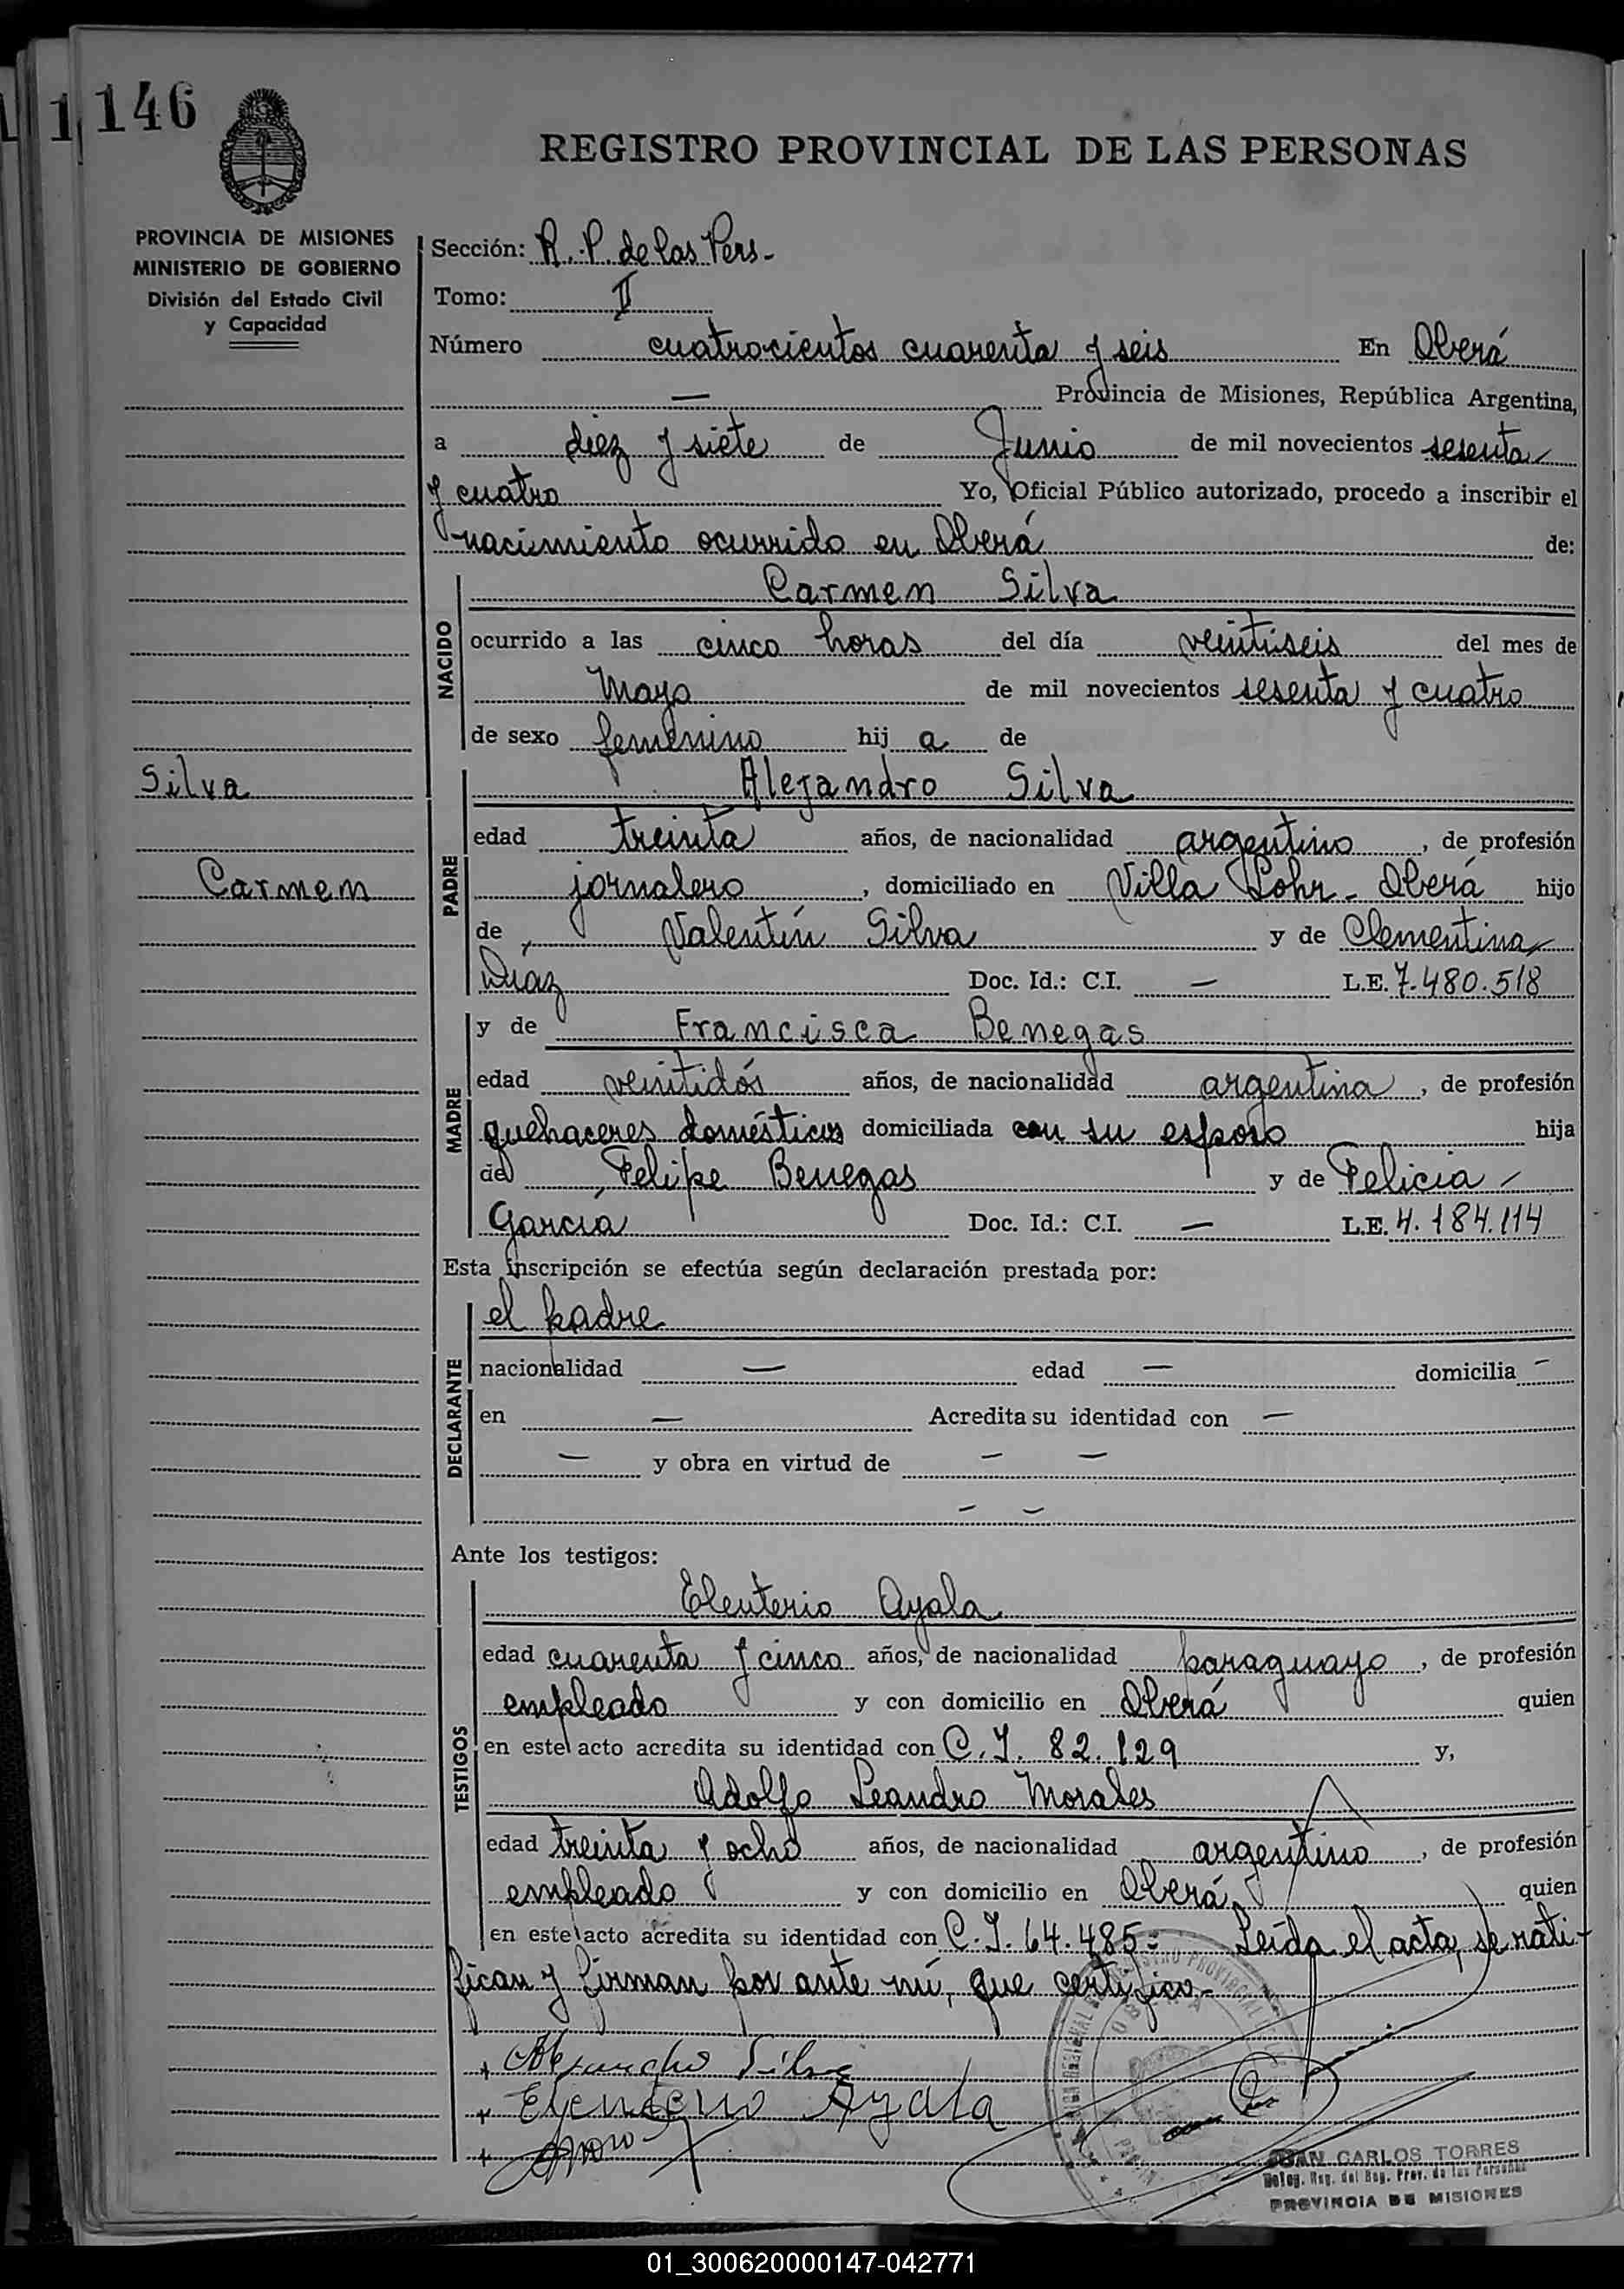 1 146
REGISTRO PROVINCIAL DE LAS PERSONAS
PROVINCIA DE MISIONES
MINISTERIO DE GOBIERNO
División del Estado Civil
y Capacidad
Sección: R. P. de las Pers.-
Tomo: II
Número cuatrocientos cuarenta y seis En Oberá
— Provincia de Misiones, República Argentina,
a diez y siete de Junio de mil novecientos sesenta
y cuatro Yo, Oficial Público autorizado, procedo a inscribir el
nacimiento ocurrido en Oberá de:
NACIDO
Carmen Silva
ocurrido a las cinco horas del día veintiseis del mes de
Mayo de mil novecientos sesenta y cuatro
de sexo femenino hij a de
Silva
Carmem
PADRE
Alejandro Silva
edad treinta años, de nacionalidad argentino, de profesión
jornalero, domiciliado en Villa Lohr - Oberá hijo
de Valentín Silva y de Clementina
Díaz Doc. Id.: C.I. — L.E. 7.480.518
MADRE
y de Francisca Benegas
edad veintidós años, de nacionalidad argentina, de profesión
quehaceres domésticos domiciliada con su esposo hija
de Felipe Benegas y de Felicia
García Doc. Id.: C.I. — L.E. 4.184.114
Esta inscripción se efectúa según declaración prestada por:
DECLARANTE
el padre
nacionalidad — edad — domicilia —
en — Acredita su identidad con —
— y obra en virtud de — —
— —
Ante los testigos:
TESTIGOS
Eleuterio Ayala
edad cuarenta y cinco años, de nacionalidad paraguayo, de profesión
empleado y con domicilio en Oberá quien
en este acto acredita su identidad con C.I. 82.129 y,
Adolfo Leandro Morales
edad treinta y ocho años, de nacionalidad argentino, de profesión
empleado y con domicilio en Oberá quien
en este acto acredita su identidad con C.I. 64.485.- Leída el acta, se rati-
fican y firman por ante mí, que certifico.-
+ Alejandro Silva
+ Eleuterio Ayala
+
JUAN CARLOS TORRES
Deleg. Reg. del Reg. Prov. de las Personas
PROVINCIA DE MISIONES
01_300620000147-042771